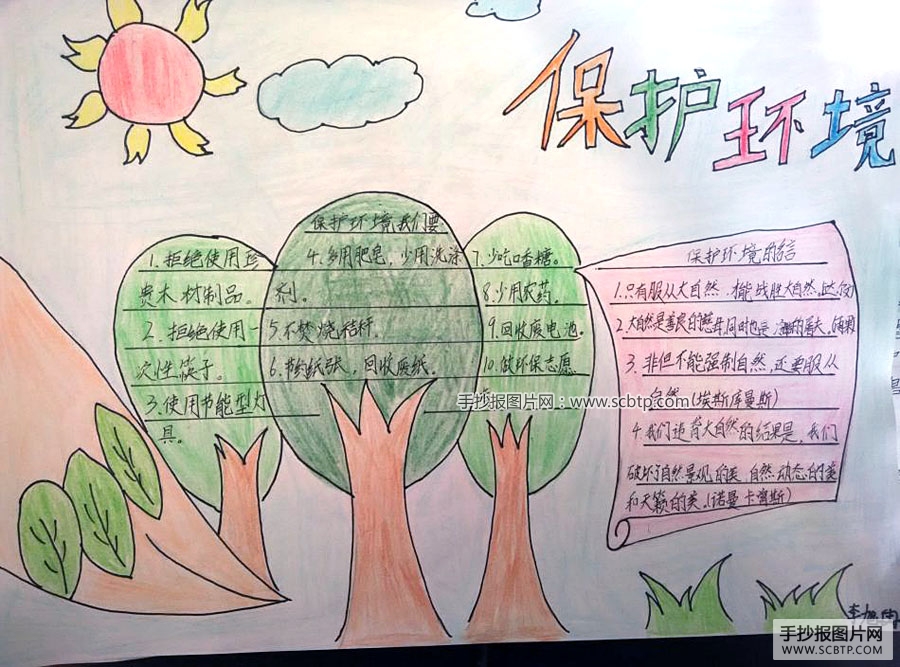 保护环境
保护环境我们要
1.拒绝使用珍
贵木材制品。
2.拒绝使用一
次性筷子。
3.使用节能型灯
具。
4.多用肥皂,少用洗涤
剂。
5.不焚烧秸秆
6.节约纸张,回收废纸.
7.少吃口香糖。
8.少用农药。
9.回收废电池。
10.做环保志愿
手抄报图片网:www.scbtp.com
保护环境的
1.只有服从大自然.才能战胜大自然.
2.大自然是善良的慈母,同时也是
3.非但不能强制自然,还要服从
自然(埃斯库曼斯)
4.我们违背大自然的结果是,我们
破坏了自然景观的美 自然动态的美
和天籁的美.(诺曼 卡斯)
手抄报图片网
WWW.SCBTP.COM